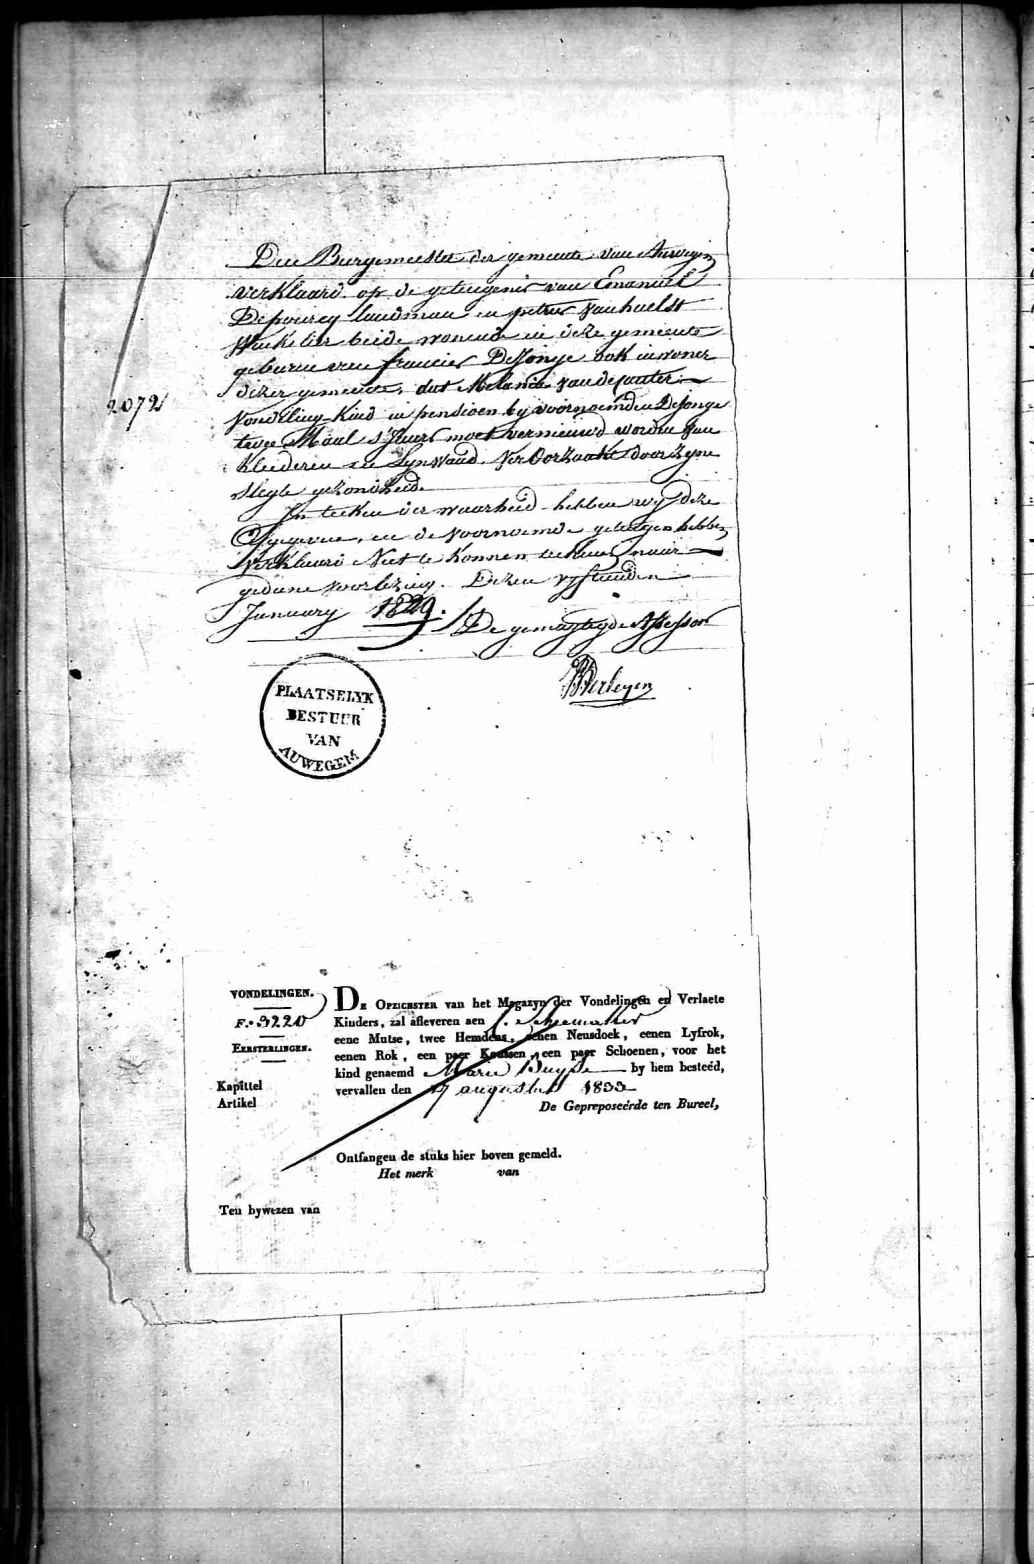 Den Burgemeester der gemeente van Auwegem
verklaard op de geteugenis van Emanuel
Depourcq landman en petrus vanhulst
beide wonende in deze gemeente
geburen van francies DeJonge ook inwoner
dezer gemeente, dat Melanie vande
vondeling Kind in pensioen by voornoemden DeJonge
twee Mael s'Jaers moet vernieuwd worden van
Kleederen en Lynwaad veroorzaakt door zyne
slegte gezondheid.
In teeken der waarheid hebben wy deze
afgegeven, en de voornoemde geteugen hebben
verklaard Niet te konnen teekenen naar
gedane voorlezing. Dezen vyftienden
January 1829.
De gemagtigde Assessor
2072
PLAATSELYK
BESTUUR
VAN
AUWEGEM
VONDELINGEN.
F.o 3220
EERSTERLINGEN.
Kapittel
Artikel
DE OPZIGSTER van het Magazyn der Vondelingen en Verlaete
Kinders, zal afleveren aen
eene Mutse, twee Hemdens, eenen Neusdoek, eenen Lyfrok,
eenen Rok, een paer Koussen, een paer Schoenen, voor het
kind genaemd Marie Buysse by hem besteéd,
vervallen den 17 augustus 1833
De Gepreposeérde ten Bureel,
Ontfangen de stuks hier boven gemeld.
Het merk van
Ten bywezen van